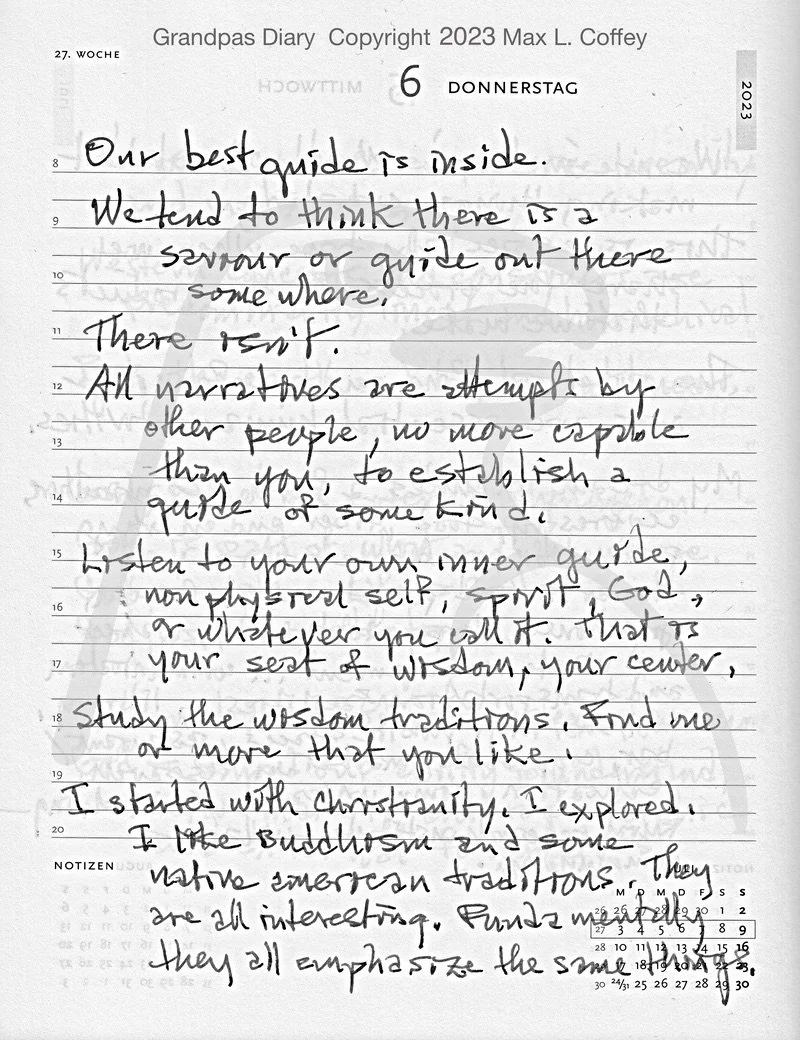 Grandpas Diary Copyright 2023 Max L. Coffey
27. WOCHE
6 DONNERSTAG
2023
8 Our best guide is inside.
9 We tend to think there is a
saviour or guide out there
10 somewhere.
11 There isn't.
12 All narratives are attempts by
other people, no more capable
13 than you, to establish a
14 guide of some kind.
15 Listen to your own inner guide,
non physical self, spirit, God,
16 or whatever you call it. That is
17 your seat of wisdom, your center,
18 Study the wisdom traditions. Find one
or more that you like.
19 I started with Christianity. I explored.
20 I like Buddhism and some
NOTIZEN native american traditions. They
are all interesting. Fundamentally
they all emphasize the same things.
M D M D F S S
26 26 27 28 29 30 1 2
27 3 4 5 6 7 8 9
28 10 11 12 13 14 15 16
17 18 19 20 21 22 23
30 24/31 25 26 27 28 29 30